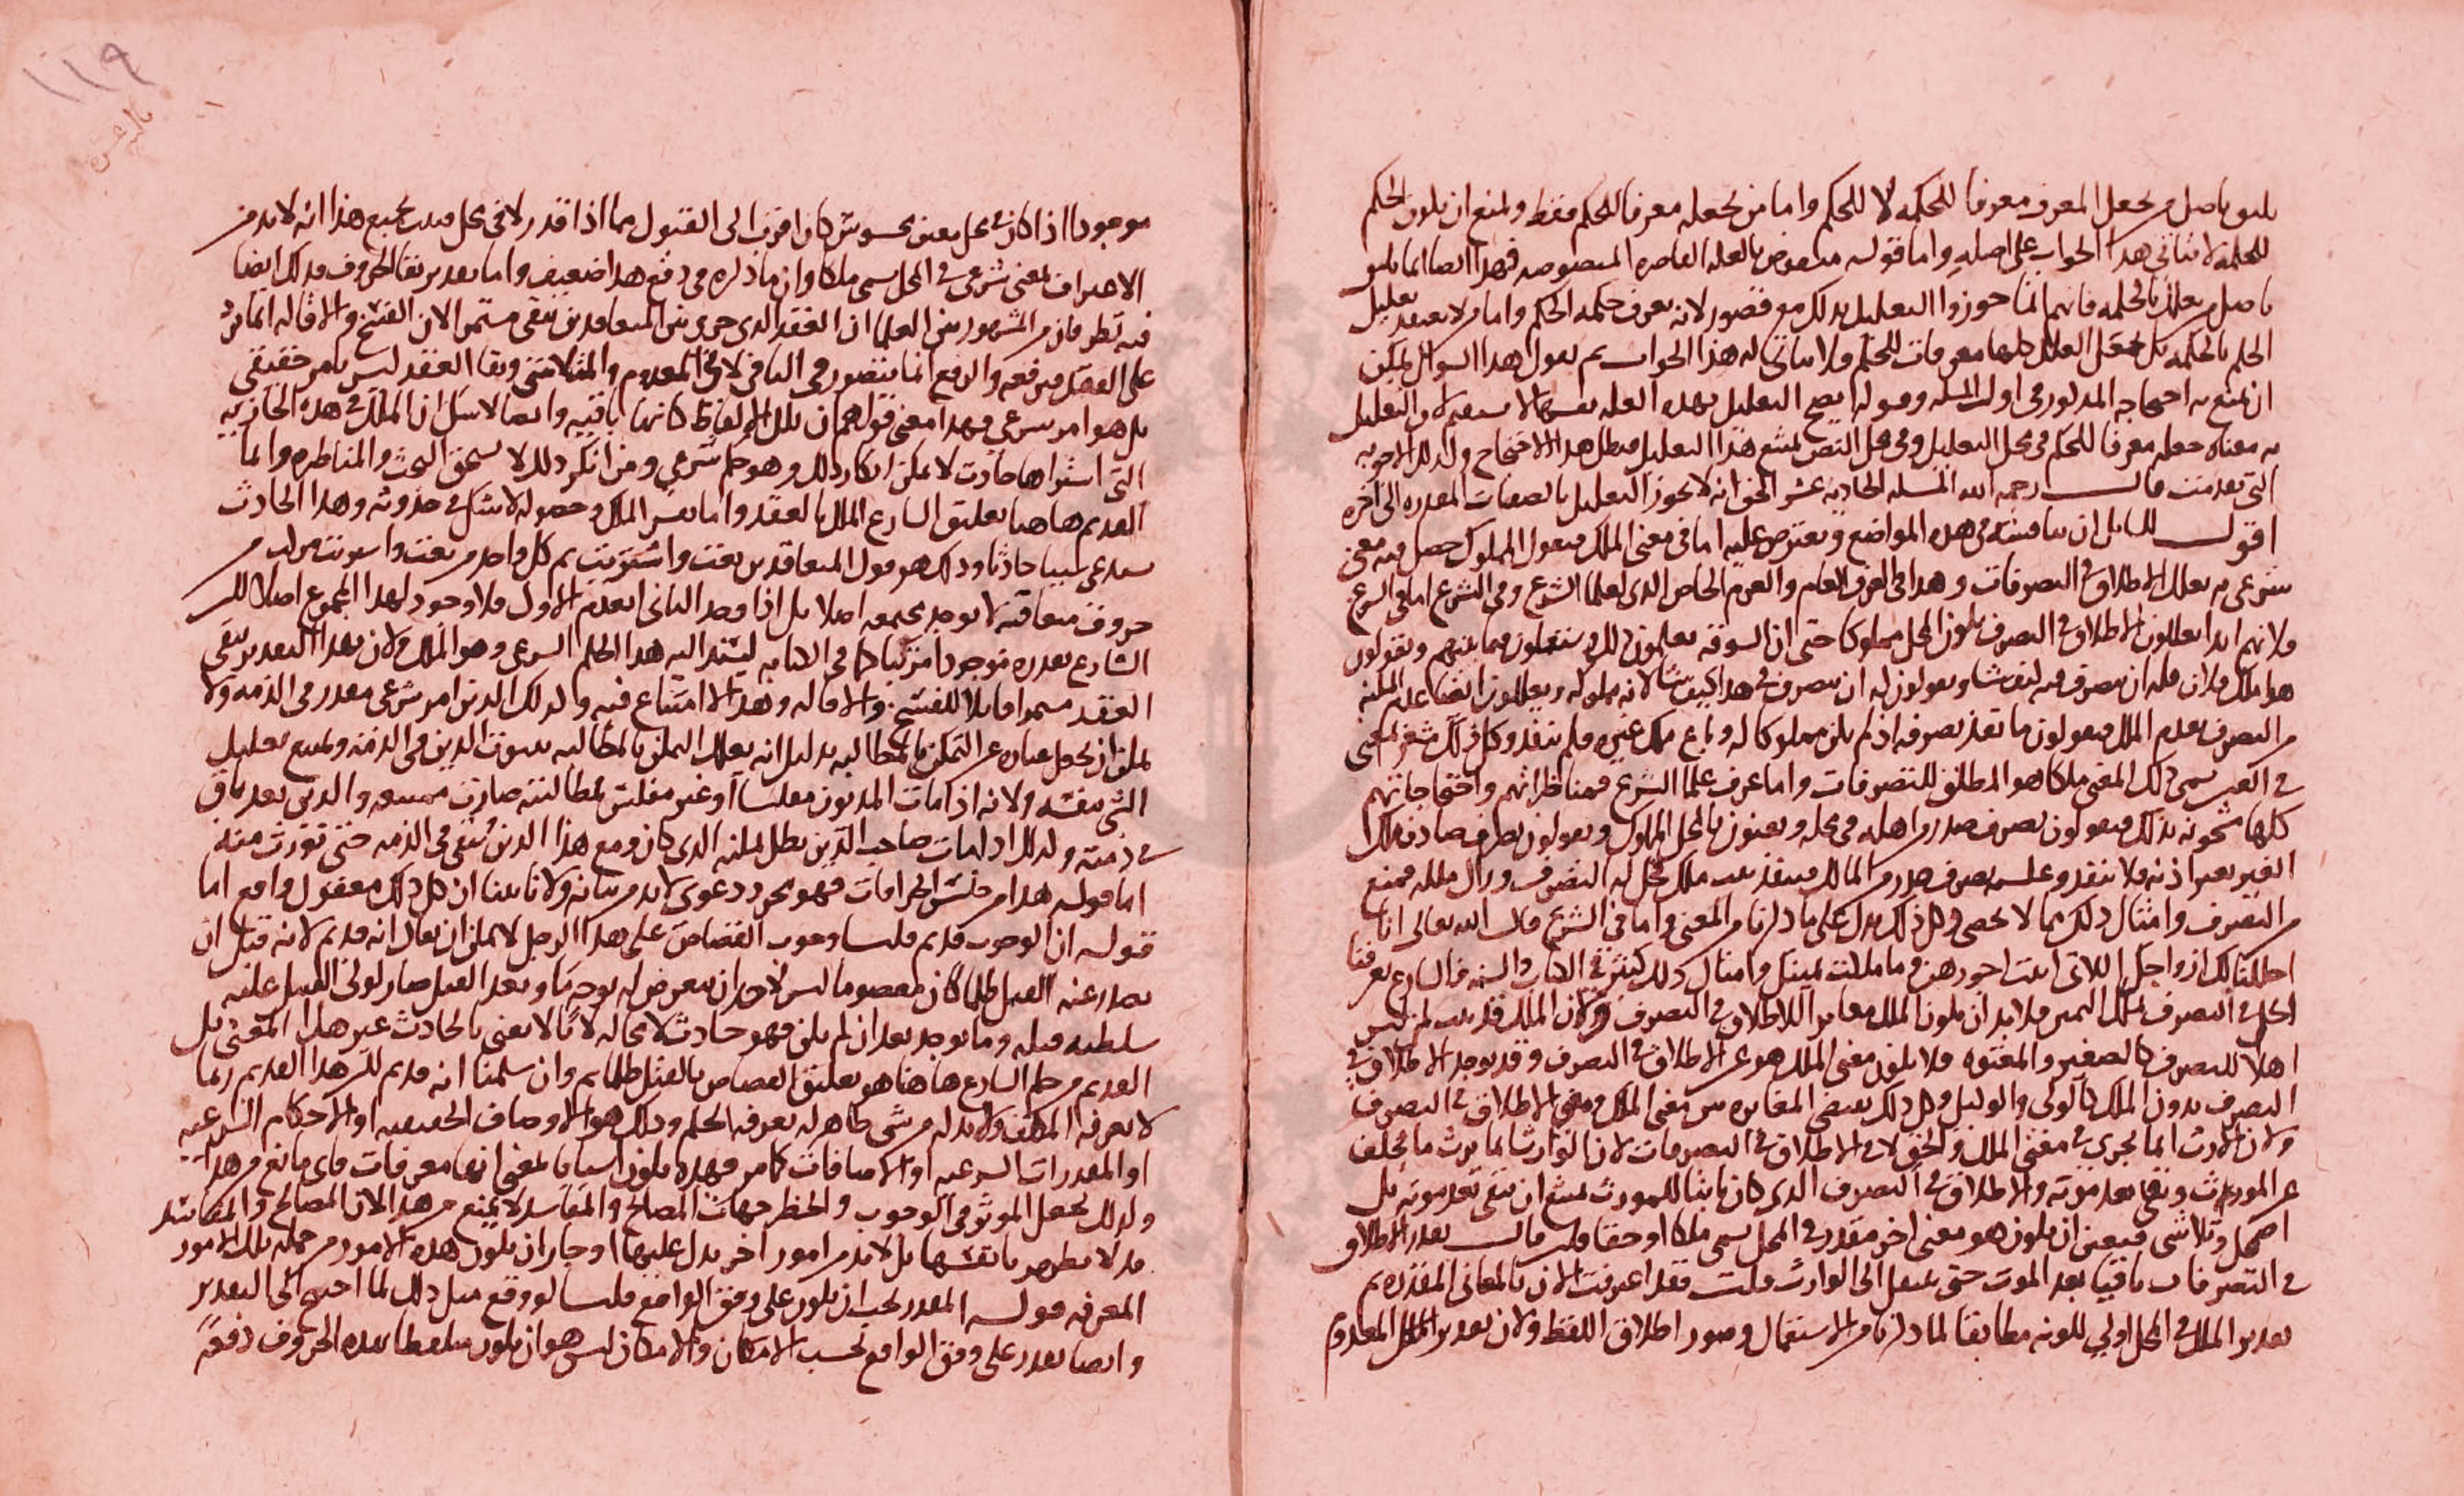 يليق باصل من يجعل المعرف معرفا للحكمه لا للحكم واما من يجعله معرفا للحكم فقط ويمنع ان يكون الحكم
للحكمه لا يتاتى هذا الجواب على اصله واما قوله منقوض بالعله القاصره المنصوصه فهذا ايضا انما يليق
باصل من يعلل بالحكمه فانهم انما جوزوا التعليل بذلك مع قصور لانه يعرف حكمه الحكم واما من لا يعتقد تعليل
الحكم بالحكمه بل يجعل العلل كلها معرفات للحكم فلا يتاتى له هذا الجواب ثم نقول هذا السوال يمكن
ان يمنع به احتجاجه المذكور في اول المسله وقوله ايضح التعليل بهذه العله نفسها لا لان التعليل
به معناه جعله معرفا للحكم في محل التعليل وفي محل النص يمتنع هذا التعليل فبطل هذا الاحتجاج وكذلك الاجوبه
التي تقدمت قال رحمه الله المسله الحاديه عشر الحق انه لا يجوز التعليل بالصفات المقدره الى اخره
اقول لقايل ان يناقشه في هذه المواضع ويعترض عليه اما في معنى الملك فنقول المملوك حصل فيه معنى
شرعي به يعلل الاطلاق في التصرفات وهذا في العرف العام والعرف الخاص الذي لعلما الشرع وفي الشرع اما في العرف
فلانهم ابدا يعللون الاطلاق في التصرف بكون المحل مملوكا حتى ان السوقه يعلمون ذلك ويستعملون فيما بينهم ويقولون
هذا ملك فلان فله ان يتصرف فيه كيف شا ويقولون له ان يتصرف في هذا كيف شا لانه مملوكه ويعللون ايضا عدم المكنه
من التصرف بعدم الملك فيقولون ما نفذ تصرفه اذ لم يكن مملوكا له وباع ملك غيره فلم ينفذ وكل ذلك مشعر بمعنى
في العين يسمى ذلك المعنى ملكا هو المطلق للتصرفات واما عرف علما الشرع فمناظراتهم واحتجاجاتهم
كلها مشحونه بذلك فيقولون تصرف صدر من اهله في محله ويعنون بالمحل المملوك ويقولون تصرف صادف ملك
الغير بغير اذنه فلا ينفذ وعكسه تصرف صدر من المالك فينفذ ملك محل له التصرف وزال ملكه فمنع
من التصرف وامثال ذلك مما لا يحصى وكل ذلك يدل على ما ذكرنا من المعنى واما في الشرع قال الله تعالى انا
احللنا لك ازواجك اللاتي اتيت اجورهن وما ملكت يمينك وامثال ذلك كثير في الكتاب والسنه فالشارع يعرفنا
الحل في التصرف بملك اليمين فلا بد ان يكون الملك مغايرا للاطلاق في التصرف ولان الملك قد يثبت لمن ليس
اهلا للتصرف كالصغير والمعتوه فلا يكون معنى الملك هو عين الاطلاق في التصرف وقد يوجد الاطلاق في
التصرف بدون الملك كالولي والوكيل وكل ذلك يقتضي المغايره بين معنى الملك ومعنى الاطلاق في التصرف
ولان الارث انما يجري في معنى الملك والحق لا في الاطلاق في التصرفات لان الوارث انما يرث ما يخلف
عن المورث ويبقى بعد موته والاطلاق في التصرف الذي كان ثابتا للمورث يمتنع ان يبقى بعد موته بل
اضمحل وتلاشى فيتعين ان يكون هو معنى اخر مقدر في المحل يسمى ملكا او حقا فان قال بقدر الاطلاق
في التصرفات باقيا بعد الموت حتى ينتقل الى الوارث قلت فقد اعترفت الان بالمعاني المقدره ثم
تقدير الملك في المحل اولى لكونه مطابقا لما ذكرنا من الاستعمال وصور اطلاق اللفظ ولان تقدير المعدوم
١١٩
موجودا اذا كان في محل معين محسوس كان اقرب الى القبول مما اذا قدر لا في محل فثبت بجميع هذا انه لا بد من
الاعتراف بمعنى شرعي في المحل يسمى ملكا وان ما ذكره في دفع هذا ضعيف واما تقدير بقا الحروف فذلك ايضا
فيه نظر فان من المشهور بين العلما ان العقد الذي جرى بين المتعاقدين يبقى مستمرا لان الفسخ والاقاله انما يرد
على العقد فيرفعه والرفع انما يتصور في الباقي لا في المعدوم والمتلاشي وبقا العقد ليس بامر حقيقي
بل هو امر شرعي فهذا معنى قولهم ان تلك الالفاظ كانها باقيه وايضا لا شك ان الملك في هذه الجاريه
التي اشتراها حادث لا يمكن انكار ذلك وهو حكم شرعي ومن انكر ذلك لا يستحق البحث والمناظره وانما
القديم هاهنا تعليق الشارع الملك بالعقد واما نفس الملك وحصوله لا شك في حدوثه وهذا الحادث
يستدعي سببا حادثا وذلك هو قول المتعاقدين بعت واشتريت ثم كل واحد من بعت واشتريت مركب من
حروف متعاقبه لا يوجد بجمعه اصلا بل اذا وجد الثاني انعدم الاول فلا وجود لهذا المجموع اصلا لكن
الشارع يقدره موجودا مركبا كما في الكتابه ليستند اليه هذا الحكم الشرعي وهو الملك ولان بهذا التقدير يبقى
العقد مستمرا قابلا للفسخ والاقاله وهذا لا امتناع فيه وكذلك الدين امر شرعي مقدر في الذمه ولا
يمكن ان يجعل عباره عن التمكن بالمطالبه بدليل انه يعلل التمكن بالمطالبه بثبوت الدين في الذمه ويمتنع تعليل
الشي بنفسه ولانه اذا مات المديون مفلسا او غير مفلس بمطالبته صارت ممتنعه والدين بعد باق
في ذمته وكذلك اذا مات صاحب الدين بطل تمكنه الذي كان ومع هذا الدين يبقى في الذمه حتى تورث منه
اما قوله هذا من جنس الخرافات فهو مجرد دعوى لا بد من بيانه ولانا بينا ان كل ذلك معقول واقع اما
قوله ان الوجوب قديم قلنا وجوب القصاص على هذا الرجل لا يمكن ان يقال انه قديم لانه قبل ان
يصدر عنه القتل ظلما كان معصوما ليس لاحد ان يتعرض له بوجه ما وبعد القتل صار لولي القتيل عليه
سلطنه قبله وما يوجد بعد ان لم يكن فهو حادث لا محاله لانا لا نعني بالحادث غير هذا المعنى بل
القديم من حكم الشارع هاهنا هو تعليق القصاص بالقتل ظلما ثم وان سلمنا انه قديم لكن هذا القديم ربما
لا يعرفه المكلف ولا بد له من شي ظاهر له يعرفه الحكم وذلك هو الاوصاف الحقيقيه او الاحكام الشرعيه
او المقدرات الشرعيه او الاضافات كما مر فهذه يكون اسبابا بمعنى انها معرفات فاي مانع من هذا
وكذلك يجعل الموثر في الوجوب والحظر جهات المصالح والمفاسد لا يمتنع من هذا لان المصالح والمفاسد
قد لا يظهر بانفسها بل لا بد من امور اخر يدل عليها وجاز ان يكون هذه الامور من جمله تلك الامور
المعرفه قوله المقدر يجب ان يكون على وفق الواقع قلنا لو وقع مثل ذلك لما احتيج الى التقدير
وايضا يقدر على وفق الواقع بحسب الامكان والامكان ليس هو ان يكون متلفظا بهذه الحروف دفعة